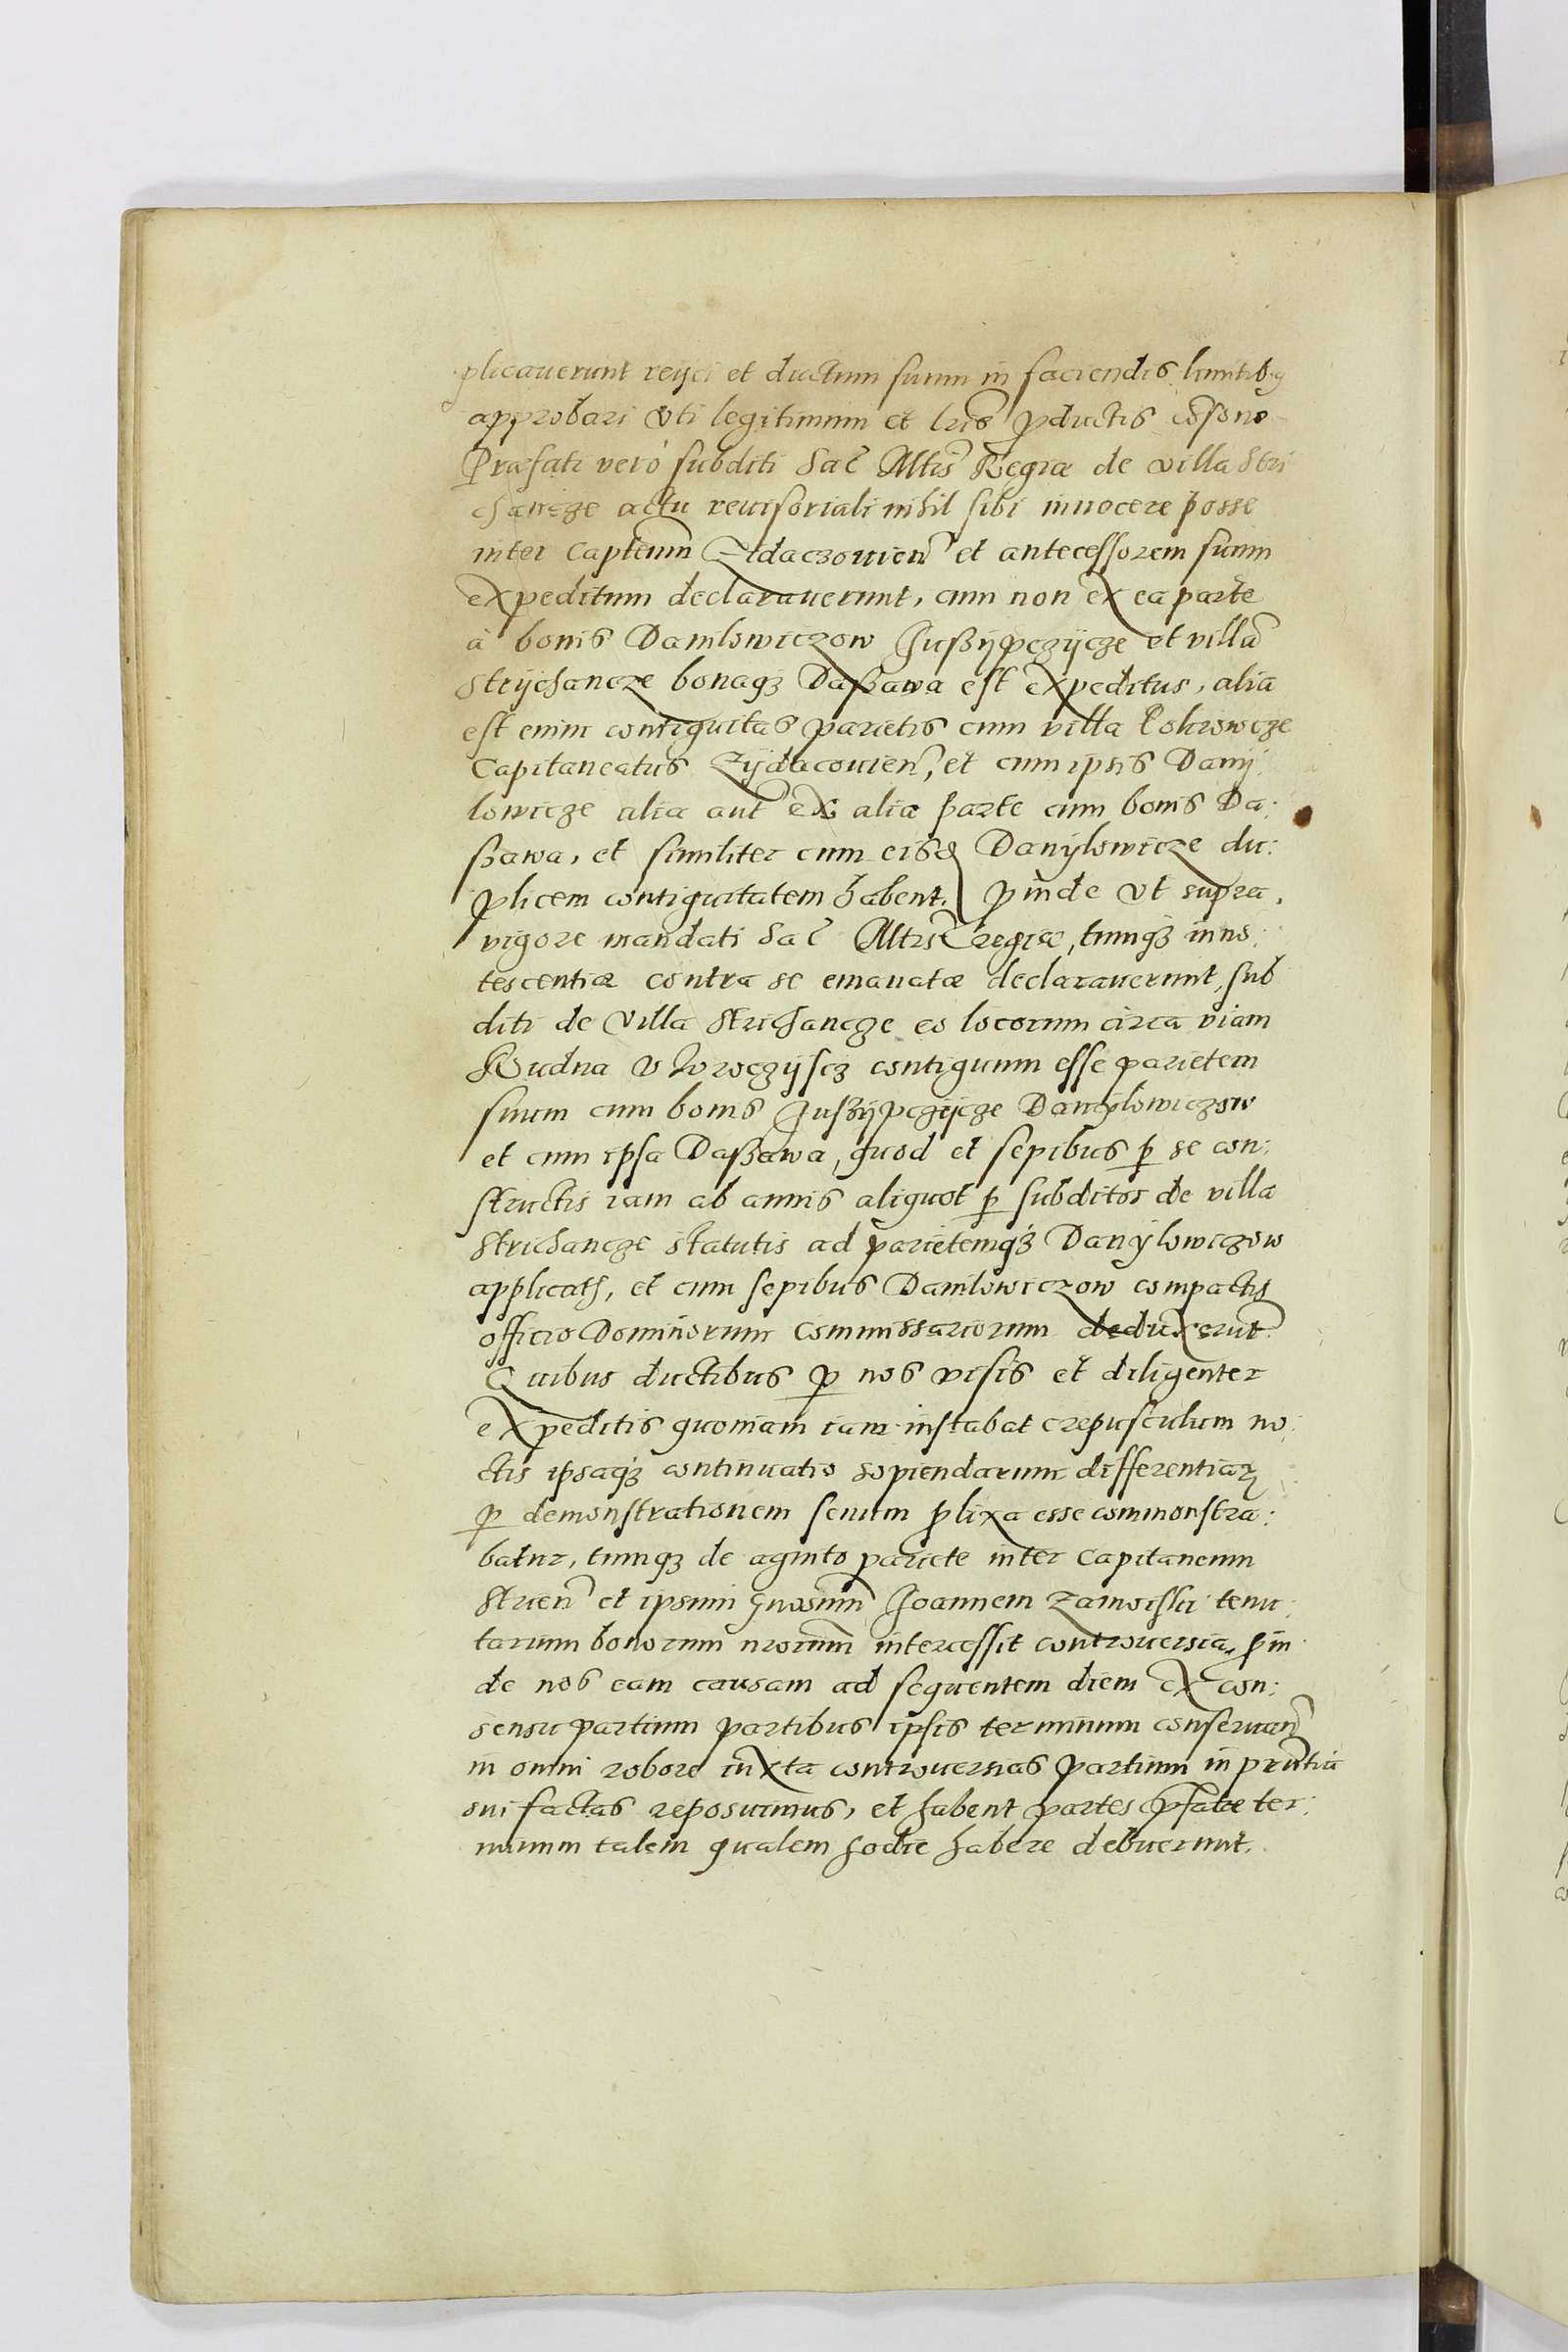 plicauerunt reijci et ductum suum in faciendis limitibus
approbari vti legitimum et lris pductis cosono
Præfati verò subditi Sac Mtis Regiæ de villa Stri
chancze actu reuisoriali nihil sibi innocere posse
inter Capteum Zidaczouien et antecessorem suum
expeditum declarauerunt, cum non ex ea parte
à bonis Danilowiczow Jußijpczijcze et villa
Strijchancze bonaqȝ Daßawa est expeditus, alia
est enim contiguitas parietis cum villa
Capitaneatus Zijdacouien, et cum ipsis Danij
lowicze alia aut ex alia parte cum bonis Da:
ßawa, et similiter cum eisd Danijlowicze du:
plicem contiguitatem habent. pinde vt supra,
vigore mandati Sac Mtis regiæ, tumqȝ inno:
tescentiæ contra se emanatæ declarauerunt, sub
diti de villa Strichancze eo locorum circa viam
Rudna contiguum esse parietem
suum cum bonis Jußijpczijcze Danijlowiczow
et cum ipsa Daßawa, quod et sepibus p se con:
structis iam ab annis aliquot p subditos de villa
Strichancze statutis ad parietemqȝ Danijlowiczow
applicatis, et cum sepibus Danilowiczow compactis
officio Dominorum Commissariorum deduxerut
Quibus ductibus p nos visis et diligenter
expeditis quoniam iam instabat crepusculum no:
ctis ipsaqȝ continuatio sopiendarum differentiaꝝ
p demonstrationem senum plixa esse commonstra:
batur, tumqȝ de aginto pariete inter Capitaneum
Strien et ipsum Gnosum Joannem Zamoiski tenu:
tarum bonorum nrorum intercessit controuersia, pin
de nos eam causam ad sequentem diem ex con:
sensu partium partibus ipsis terminum conseruan
in omni robore iuxta controuersias partium in pruntia
sui factas reposuimus, et habent partes pfatæ ter:
minum talem qualem hodie habere debuerunt.